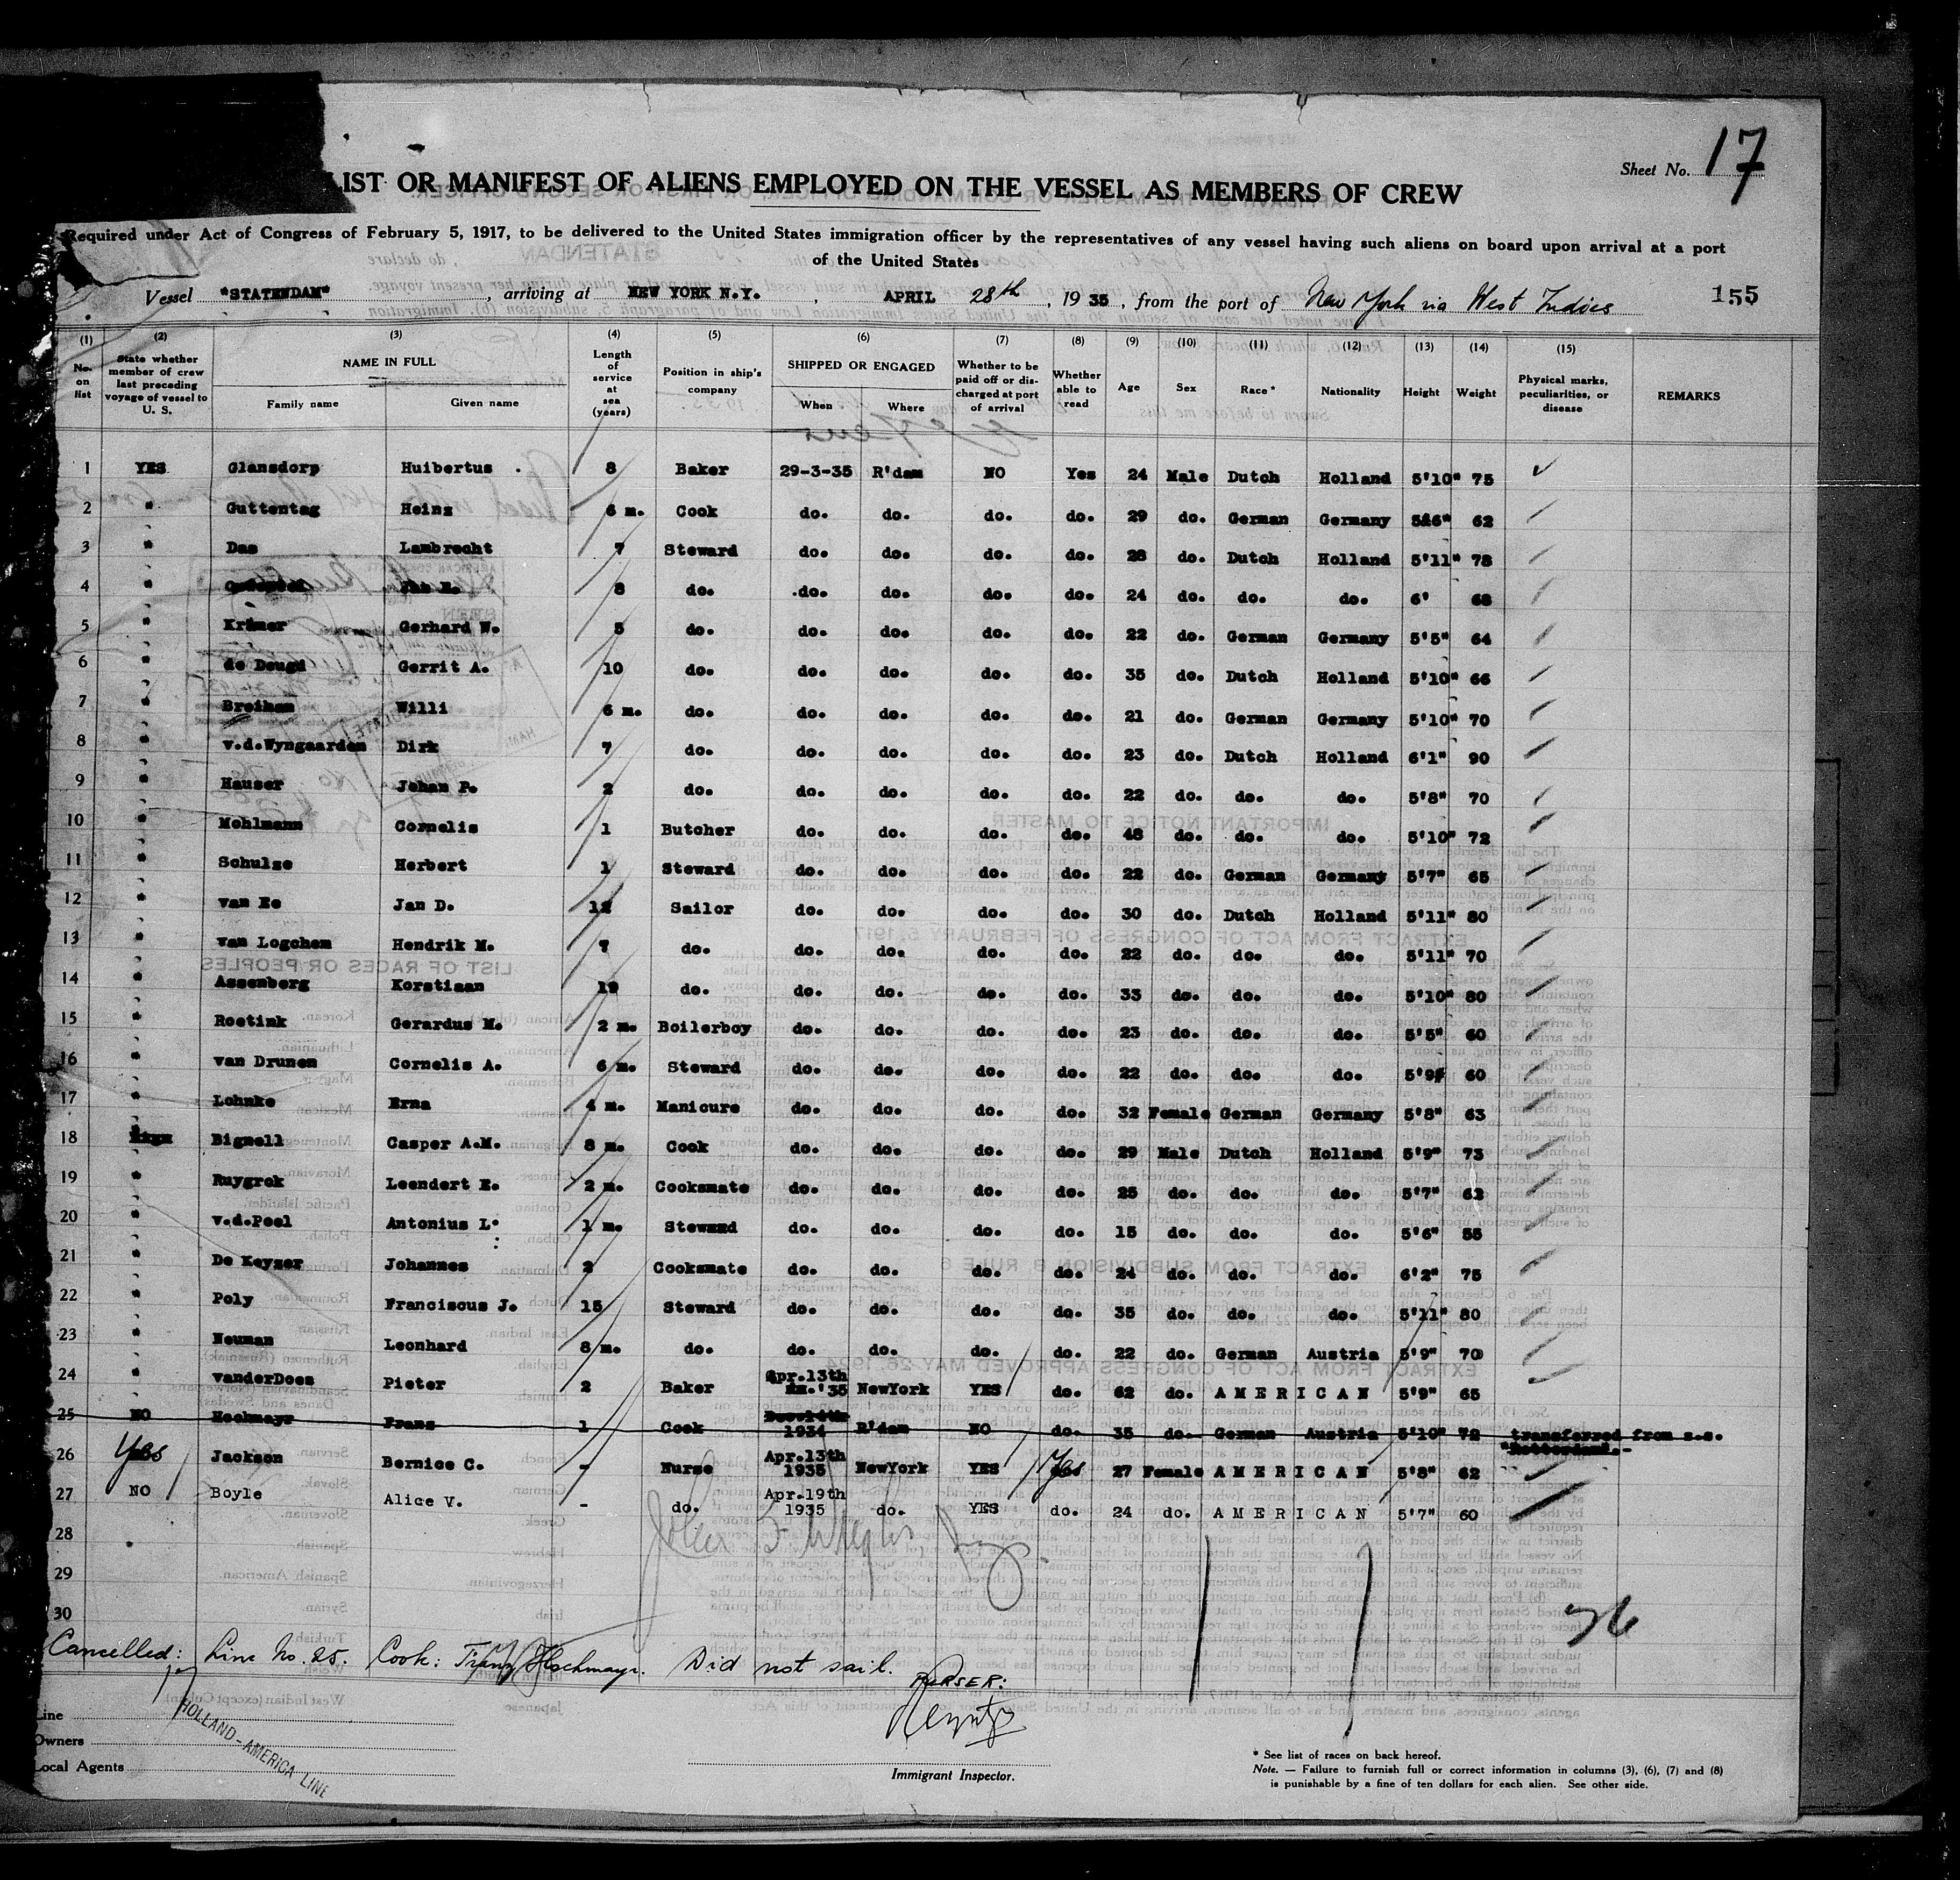 Sheet No. 17
LIST OR MANIFEST OF ALIENS EMPLOYED ON THE VESSEL AS MEMBERS OF CREW
Required under Act of Congress of February 5, 1917, to be delivered to the United States immigration officer by the representatives of any vessel having such aliens on board upon arrival at a port
of the United States
Vessel "STATENDAM", arriving at NEW YORK N.Y., APRIL 28th, 19 35, from the port of New York via West Indies 155
(1) (2) (3) (4) (5) (6) (7) (8) (9) (10) (11) (12) (13) (14) (15)
No. on list State whether member of crew last preceding voyage of vessel to U. S. NAME IN FULL Family name Given name Length of service at sea (years) Position in ship's company SHIPPED OR ENGAGED When Where Whether to be paid off or discharged at port of arrival Whether able to read Age Sex Race* Nationality Height Weight Physical marks, peculiarities, or disease REMARKS
1 YES Glansdorp Huibertus 8 Baker 29-3-35 R'dam NO Yes 24 Male Dutch Holland 5'10" 75
2 " Guttentag Heinz 6 m. Cook do. do. do. do. 29 do. German Germany 5&6" 62
3 " Das Lambrecht 7 Steward do. do. do. do. 28 do. Dutch Holland 5'11" 78
4 " 8 do. do. do. do. do. 24 do. do. do. 6' 68
5 " Krämer Gerhard W. 5 do. do. do. do. do. 22 do. German Germany 5'5" 64
6 " de Deugd Gerrit A. 10 do. do. do. do. do. 35 do. Dutch Holland 5'10" 66
7 " Breihan Willi 6 m. do. do. do. do. do. 21 do. German Germany 5'10" 70
8 " v.d.Wyngaarden Dirk 7 do. do. do. do. do. 23 do. Dutch Holland 6'1" 90
9 " Hauser Johan P. 2 do. do. do. do. do. 22 do. do. do. 5'8" 70
10 " Mohlmann Cornelis 1 Butcher do. do. do. do. 48 do. do. do. 5'10" 72
11 " Schulze Herbert 1 Steward do. do. do. do. 22 do. German Germany 5'7" 65
12 " van Ee Jan D. 12 Sailor do. do. do. do. 30 do. Dutch Holland 5'11" 80
13 " van Logchem Hendrik M. 7 do. do. do. do. do. 22 do. do. do. 5'11" 70
14 " Assenberg Korstiaan do. do. do. do. do. 33 do. do. do. 5'10" 80
15 " Roetink Gerardus M. 2 m. Boilerboy do. do. do. do. 23 do. do. do. 5'5" 60
16 " van Drunen Cornelis A. 6 m. Steward do. do. do. do. 22 do. do. do. 5'9" 60
17 " Lohnke Erna 4 m. Manicure do. do. do. do. 32 Female German Germany 5'8" 63
18 Bignell Casper A.M. 8 m. Cook do. do. do. do. 29 Male Dutch Holland 5'9" 73
19 " Ruygrok Leendert E. 2 m. Cooksmate do. do. do. do. 25 do. do. do. 5'7" 62
20 " v.d.Peel Antonius L. 1 m. Steward do. do. do. do. 15 do. do. do. 5'6" 55
21 " De Keyzer Johannes 2 Cooksmate do. do. do. do. 24 do. do. do. 6'2" 75
22 " Poly Franciscus J. 15 Steward do. do. do. do. 35 do. do. do. 5'11" 80
23 " Neuman Leonhard 8 m. do. do. do. do. do. 22 do. German Austria 5'9" 70
24 " vanderDoes Pieter 2 Baker Apr.13th '35 NewYork YES do. 62 do. AMERICAN 5'9" 65
25 NO Hochmayr Franz 1 Cook 1934 R'dam NO do. 35 do. German Austria 5'10" 72 transferred from s.s. "Rotterdam".-
26 Yes Jackson Bernice C. - Nurse Apr.13th 1935 NewYork YES Yes 27 Female AMERICAN 5'8" 62
27 NO Boyle Alice V. - do. Apr.19th 1935 do. YES do. 24 do. AMERICAN 5'7" 60
28
29
30
26
Cancelled: Line No. 25. Cook: Franz Hochmayr. Did not sail.
PURSER:
Line
Owners
Local Agents
HOLLAND-AMERICA LINE
Immigrant Inspector.
* See list of races on back hereof.
Note. — Failure to furnish full or correct information in columns (3), (6), (7) and (8)
is punishable by a fine of ten dollars for each alien. See other side.